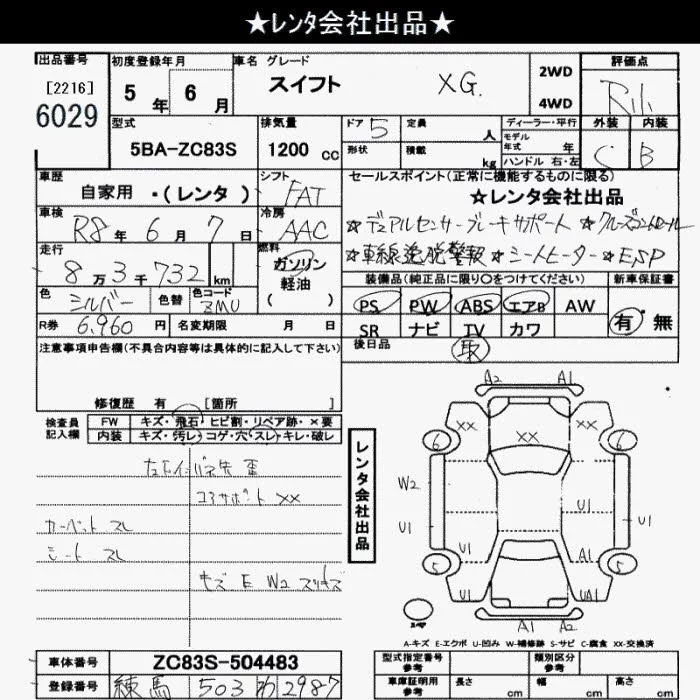 ★レンタ会社出品★
出品番号 [2216] 6029
初度登録年月 5年 6月
車名 グレード スイフト XG.
2WD 4WD
評価点
外装 C 内装 B
型式 5BA-ZC83S
排気量 1200 cc
ドア 5 定員 人
形状 積載 kg
ディーラー・平行
モデル年式 年
ハンドル 右・左
車歴 自家用 ・(レンタ)
シフト FAT
車検 R8年 6月 7日
冷房 AAC
走行 8万3千732 km
燃料 ガソリン 軽油 ( )
色 シルバー 色替 色コード ZMU
R券 6,960円 名変期限 月 日
セールスポイント(正常に機能するものに限る)
☆レンタ会社出品
☆デュアルセンサーブレーキサポート ☆クルーズコントロール
☆車線逸脱警報 ☆シートヒーター ☆ESP
装備品(純正品に限り○をつけてください) 新車保証書
PS PW ABS エアB AW 有・無
SR ナビ TV カワ
後日品 取
注意事項申告欄(不具合内容等は具体的に記入して下さい)
修復歴 有 [箇所
検査員記入欄
FW キズ・飛石・ヒビ割・リペア跡・×要
内装 キズ・汚レ・コゲ・穴・スレ・キレ・破レ
コアサポート XX
カーペット スレ
シート スレ
キズ E W2
レンタ会社出品
A2 A1
XX XX
6 6
W2
U1 U1 U1 U1
U1 A1
5 5
U1 UA1
A1 A2
A-キズ E-エクボ U-凹み W-補修跡 S-サビ C-腐食 XX-交換済
車体番号 ZC83S-504483
登録番号 練馬 503 わ 2987
型式指定番号 参考 類別区分 参考
車庫証明用 参考 長さ cm 幅 cm 高さ cm